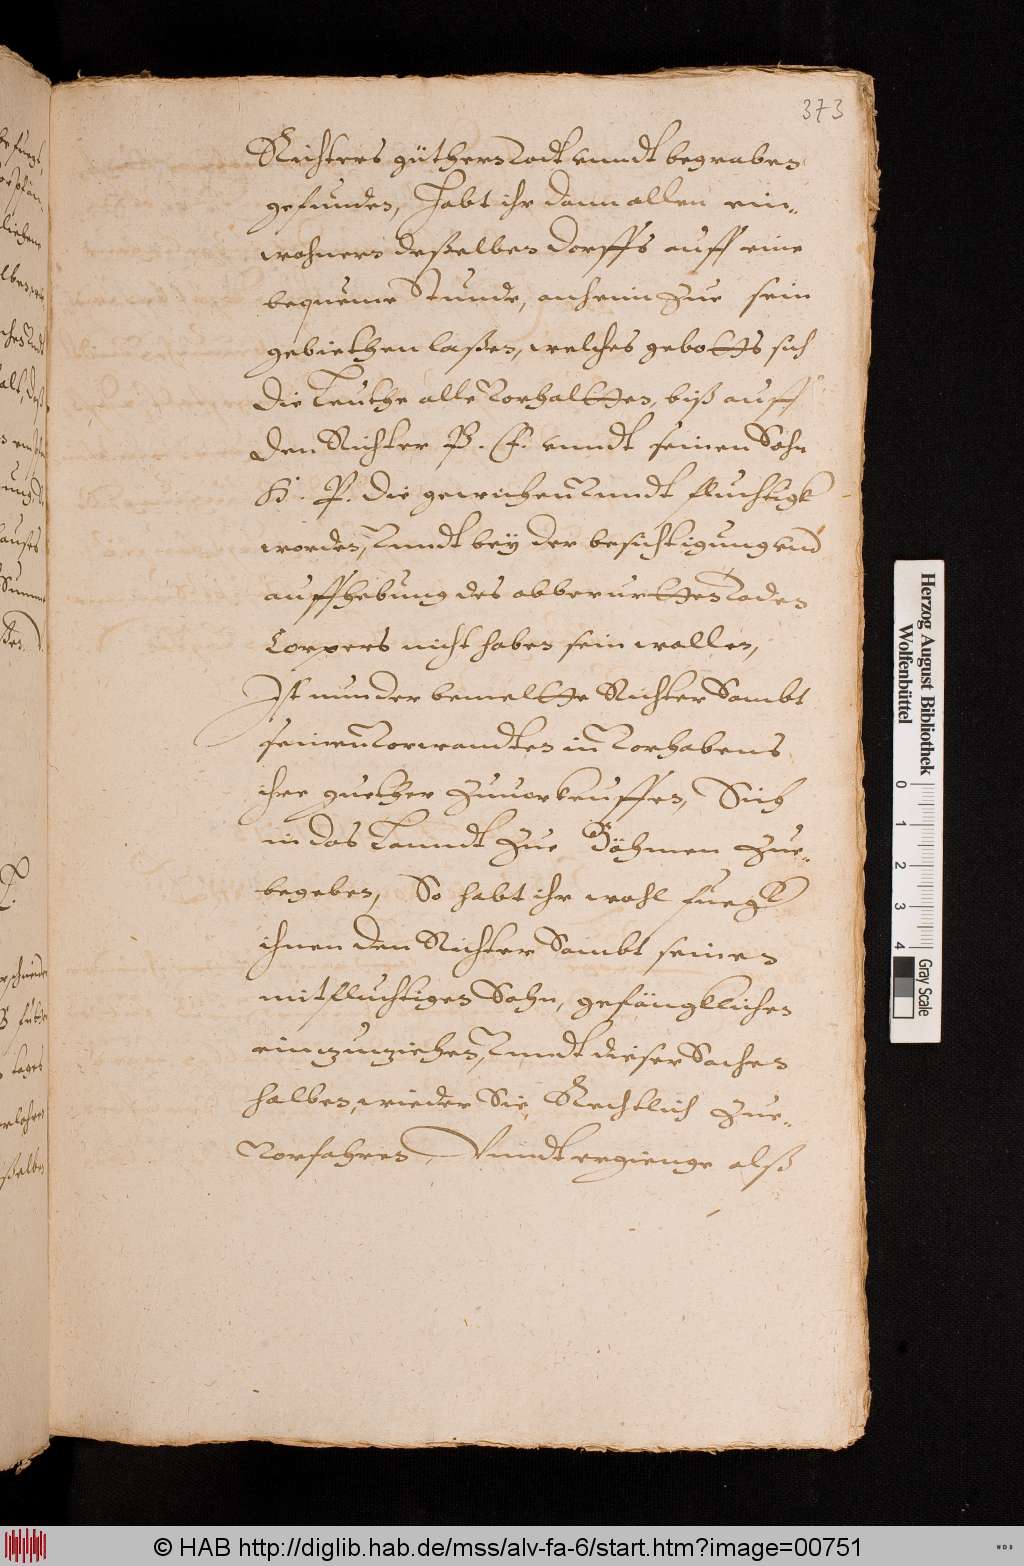 373
Richters güthern Todt vnndt begraben
gefunden, Habt ihr dann allen ein-
wohnern deßelben dorffs auff eine
bequeme Stunde, anheim Zue sein
gebiethen laßen, welches gebotts sich
die Leuthe alle Vorhaltten, biß auff
den Richter P. E. vnndt seinen Sohn
H. P. die gewichen Vnndt fluchtigk
worden, Vnndt bey der besichtigung vnd
auffhebung des obberurtten Toden
Corpers nicht haben sein wollen,
Ist nun der bemeltte Richter Sambt
seinen Vorwandten in Vorhabens
ihre guether Zuuorkeuffen, Sich
in das Landt Zue Böhmen Zue-
begeben, So habt ihr wohl fueg
ihnen den Richter Sambt seinen
mitfluchtigen Sohn, gefängklichen
einzunziehen, Vnndt dieser Sachen
halben, wieder Sie, Rechtlich Zue-
Vorfahren, Vnndt ergienge alß
Herzog August Bibliothek
Wolfenbüttel
0 1 2 3 4
Gray Scale
© HAB http://diglib.hab.de/mss/alv-fa-6/start.htm?image=00751